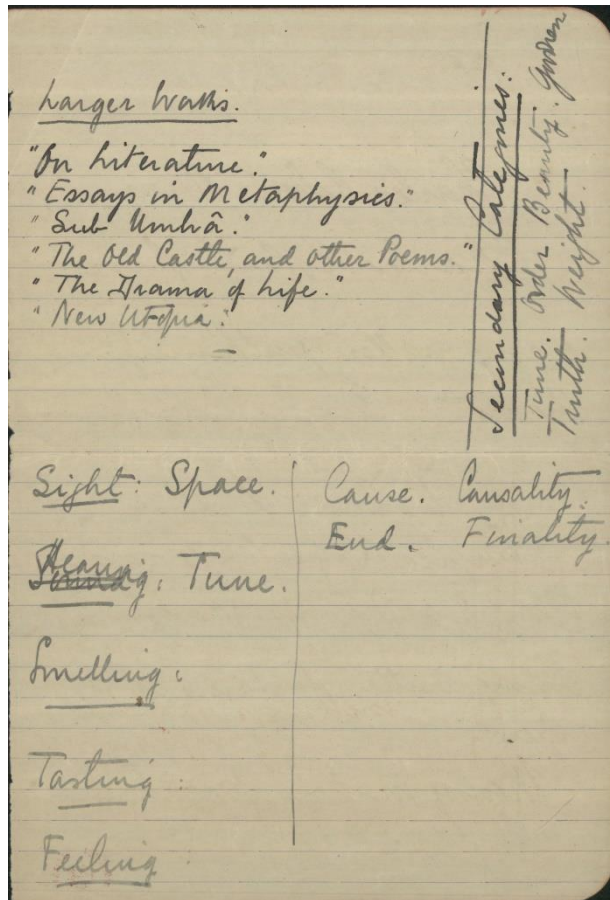 Larger Works.
"On Literature."
"Essays in Metaphysics."
"Sub Umbrâ."
"The Old Castle, and other Poems."
"The Drama of Life."
"New Utopia."
Secondary Categories:
Time. Order. Beauty.
Truth. Weight.
Sight: Space.
Hearing: Time.
Smelling:
Tasting:
Feeling
Cause. Causality.
End. Finality.